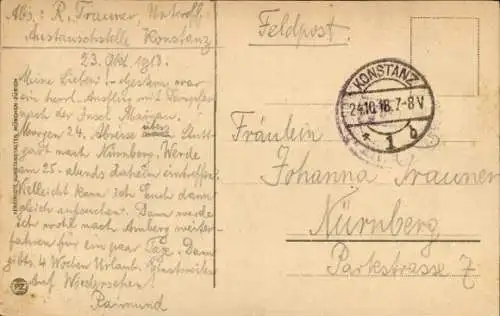 Abs.: R. Trauner, Unteroff.
Austauschstelle Konstanz
23. Okt. 1918.
Meine Lieben! Gestern war
ein herrl. Ausflug mit Dampfer
nach der Insel Mainau.
Morgen 24. Abreise über Stutt-
gart nach Nürnberg. Werde
am 25. abends daheim eintreffen.
Vielleicht kann ich Euch dann
gleich aufsuchen. Dann werde
ich wohl nach Amberg weiter-
fahren für ein paar Tage. Dann
gibts 4 Wochen Urlaub. Einstweilen
Auf Wiedersehen!
Raimund
Feldpost.
KONSTANZ
24.10.18.7-8V
* 1 b
Fräulein
Johanna Trauner
Nürnberg
Parkstrasse 7
PZ